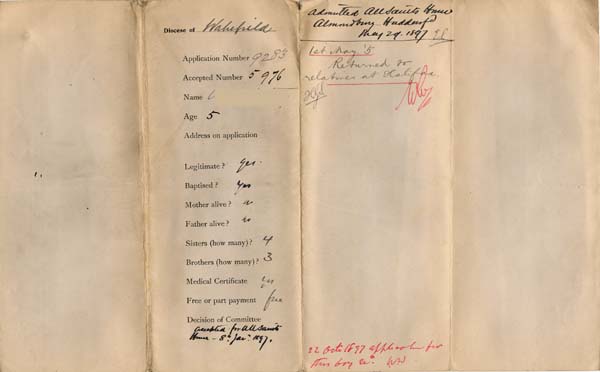 Diocese of Wakefield
Application Number 9283
Accepted Number 5976
Name
Age 5
Address on application
Legitimate? Yes.
Baptised? Yes
Mother alive? n
Father alive? n
Sisters (how many)? 4
Brothers (how many)? 3
Medical Certificate yes
Free or part payment free
Decision of Committee
accepted for All Saints
Home - 5th Jan. 1897.
Admitted All Saints Home
Almondbury Huddersfd
May 29. 1897
1st May '5
Returned to
relatives at Halifax.
22 Oct 1897 application for
this boy